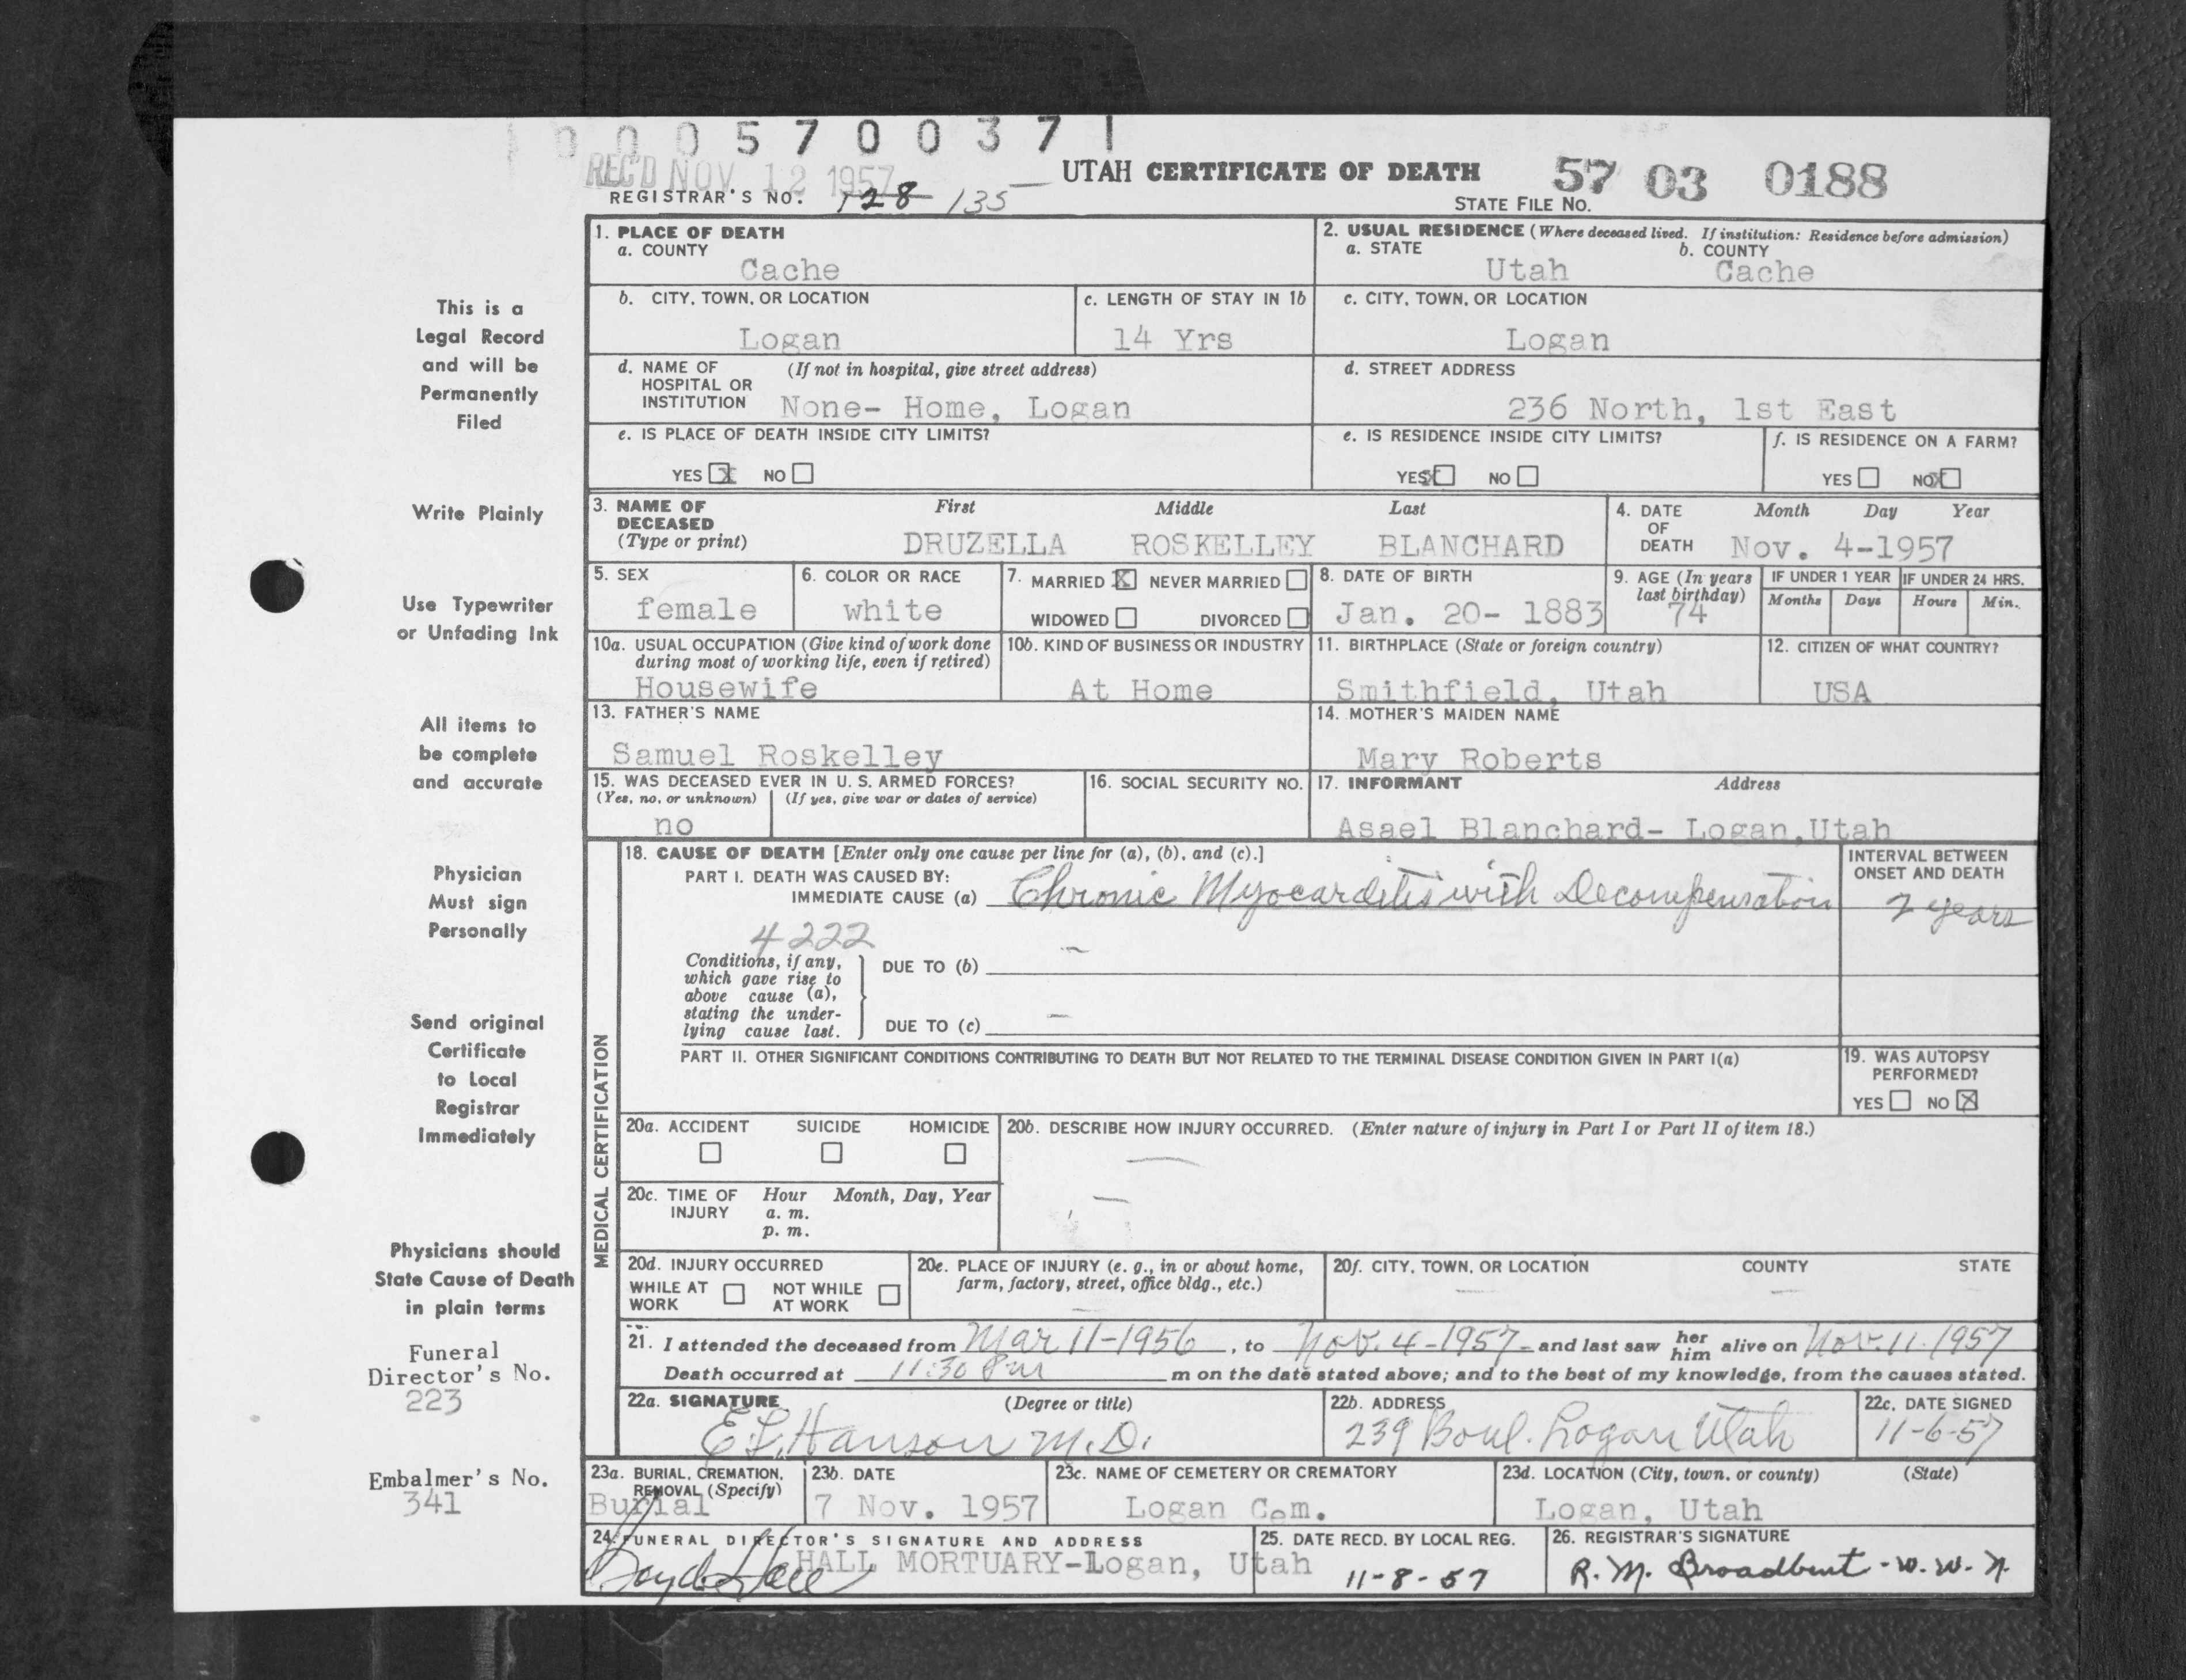 0 0 0 5 7 0 0 3 7 1
REC'D NOV 12 1957
UTAH CERTIFICATE OF DEATH
57 03 0188
REGISTRAR'S NO. 128 135
STATE FILE NO.
1. PLACE OF DEATH
a. COUNTY
Cache
2. USUAL RESIDENCE (Where deceased lived. If institution: Residence before admission)
a. STATE b. COUNTY
Utah Cache
b. CITY, TOWN, OR LOCATION
Logan
c. LENGTH OF STAY IN 1b
14 Yrs
c. CITY, TOWN, OR LOCATION
Logan
d. NAME OF (If not in hospital, give street address)
HOSPITAL OR
INSTITUTION None- Home, Logan
d. STREET ADDRESS
236 North, 1st East
e. IS PLACE OF DEATH INSIDE CITY LIMITS?
YES X NO
e. IS RESIDENCE INSIDE CITY LIMITS?
YES X NO
f. IS RESIDENCE ON A FARM?
YES NO X
3. NAME OF First Middle Last
DECEASED
(Type or print) DRUZELLA ROSKELLEY BLANCHARD
4. DATE Month Day Year
OF
DEATH Nov. 4-1957
5. SEX
female
6. COLOR OR RACE
white
7. MARRIED X NEVER MARRIED
WIDOWED DIVORCED
8. DATE OF BIRTH
Jan. 20- 1883
9. AGE (In years
last birthday)
74
IF UNDER 1 YEAR IF UNDER 24 HRS.
Months Days Hours Min.
10a. USUAL OCCUPATION (Give kind of work done
during most of working life, even if retired)
Housewife
10b. KIND OF BUSINESS OR INDUSTRY
At Home
11. BIRTHPLACE (State or foreign country)
Smithfield, Utah
12. CITIZEN OF WHAT COUNTRY?
USA
13. FATHER'S NAME
Samuel Roskelley
14. MOTHER'S MAIDEN NAME
Mary Roberts
15. WAS DECEASED EVER IN U. S. ARMED FORCES?
(Yes, no, or unknown) (If yes, give war or dates of service)
no
16. SOCIAL SECURITY NO.
17. INFORMANT Address
Asael Blanchard- Logan,Utah
MEDICAL CERTIFICATION
18. CAUSE OF DEATH [Enter only one cause per line for (a), (b), and (c).]
PART I. DEATH WAS CAUSED BY:
IMMEDIATE CAUSE (a) Chronic Myocarditis with Decompensation
INTERVAL BETWEEN
ONSET AND DEATH
2 years
4222
Conditions, if any,
which gave rise to
above cause (a),
stating the under-
lying cause last.
DUE TO (b) —
DUE TO (c) —
PART II. OTHER SIGNIFICANT CONDITIONS CONTRIBUTING TO DEATH BUT NOT RELATED TO THE TERMINAL DISEASE CONDITION GIVEN IN PART I(a)
19. WAS AUTOPSY
PERFORMED?
YES NO X
20a. ACCIDENT SUICIDE HOMICIDE
20b. DESCRIBE HOW INJURY OCCURRED. (Enter nature of injury in Part I or Part II of item 18.)
—
20c. TIME OF Hour Month, Day, Year
INJURY a. m.
p. m.
—
20d. INJURY OCCURRED
WHILE AT NOT WHILE
WORK AT WORK
20e. PLACE OF INJURY (e. g., in or about home,
farm, factory, street, office bldg., etc.)
—
20f. CITY, TOWN, OR LOCATION COUNTY STATE
— — —
21. I attended the deceased from Mar 11-1956, to Nov. 4-1957 and last saw her him alive on Nov. 11. 1957
Death occurred at 11:30 Pm m on the date stated above; and to the best of my knowledge, from the causes stated.
22a. SIGNATURE (Degree or title)
E.L. Hanson M.D.
22b. ADDRESS
239 Boul. Logan Utah
22c. DATE SIGNED
11-6-57
23a. BURIAL, CREMATION,
REMOVAL (Specify)
Burial
23b. DATE
7 Nov. 1957
23c. NAME OF CEMETERY OR CREMATORY
Logan Cem.
23d. LOCATION (City, town, or county) (State)
Logan, Utah
24. FUNERAL DIRECTOR'S SIGNATURE AND ADDRESS
Boyd Hall HALL MORTUARY-Logan, Utah
25. DATE RECD. BY LOCAL REG.
11-8-57
26. REGISTRAR'S SIGNATURE
R. M. Broadbent - W. W. N.
This is a
Legal Record
and will be
Permanently
Filed
Write Plainly
Use Typewriter
or Unfading Ink
All items to
be complete
and accurate
Physician
Must sign
Personally
Send original
Certificate
to Local
Registrar
Immediately
Physicians should
State Cause of Death
in plain terms
Funeral
Director's No.
223
Embalmer's No.
341